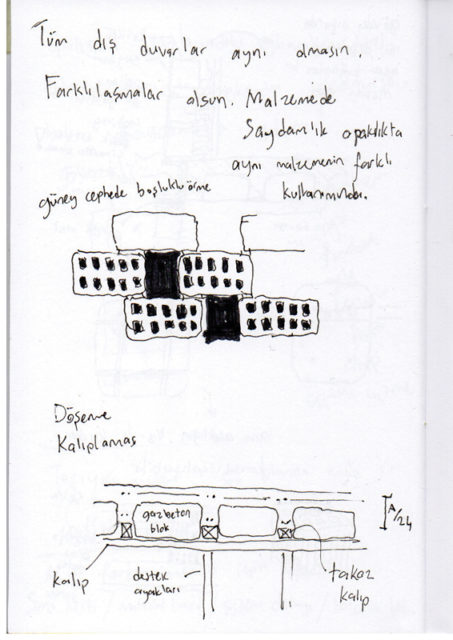 Tüm dış duvarlar aynı olmasın.
Farklılaşmalar olsun. Malzemede
Saydamlık opaklıkta
aynı malzemenin farklı
kullanımında.
güney cephede boşluklu örme
Döşeme
Kalıplaması
gazbeton
blok
A/24
kalıp
destek
ayakları
takoz
kalıp